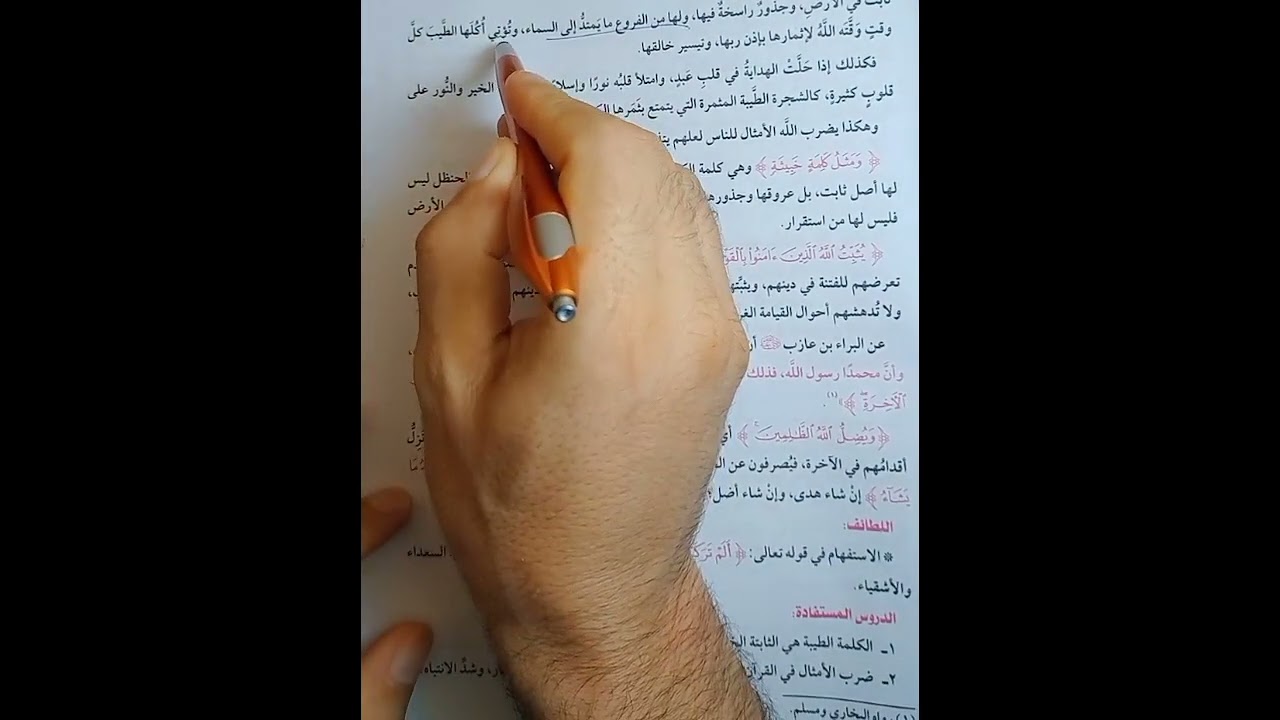 ثابت في الأرضِ، وجذورٌ راسخةٌ فيها، ولها من الفروع ما يَمتدُّ إلى السماء، وتُؤتي أُكُلَها الطَّيبَ كلَّ
وقتٍ وَقَّتَه اللَّهُ لإثمارها بإذن ربها، وتيسير خالقها.
فكذلك إذا حَلَّتْ الهدايةُ في قلبِ عَبدٍ، وامتلأ قلبُه نورًا وإسلا الخير والنُّور على
قلوبٍ كثيرةٍ، كالشجرة الطَّيبة المثمرة التي يتمتع بثَمَرها
وهكذا يضرب اللَّه الأمثال للناس لعلهم
﴿وَمَثَلُ كَلِمَةٍ خَبِيثَةٍ﴾ وهي كلمة الحنظل ليس
لها أصل ثابت، بل عروقها وجذورها الأرض
فليس لها من استقرار.
﴿يُثَبِّتُ ٱللَّهُ ٱلَّذِينَ ءَامَنُوا۟ بِٱلْقَوْ
تعرضهم للفتنة في دينهم، ويثبِّتها دينهم
ولا تُدهشهم أحوال القيامة
عن البراء بن عازب
وأنَّ محمدًا رسول اللَّه، فذلك
ٱلْآخِرَةِ﴾» (١).
﴿وَيُضِلُّ ٱللَّهُ ٱلظَّٰلِمِينَ﴾ أي
أقدامُهم في الآخرة، فيُصرفون عن
يَشَآءُ﴾ إنْ شاء هدى، وإنْ شاء أضل؛
اللطائف:
* الاستفهام في قوله تعالى: ﴿أَلَمْ تَرَ السعداء
والأشقياء.
الدروس المستفادة:
١ـ الكلمة الطيبة هي الثابتة
٢ـ ضرب الأمثال في القرآن وشدِّ الانتباه
(١) رواه البخاري ومسلم.